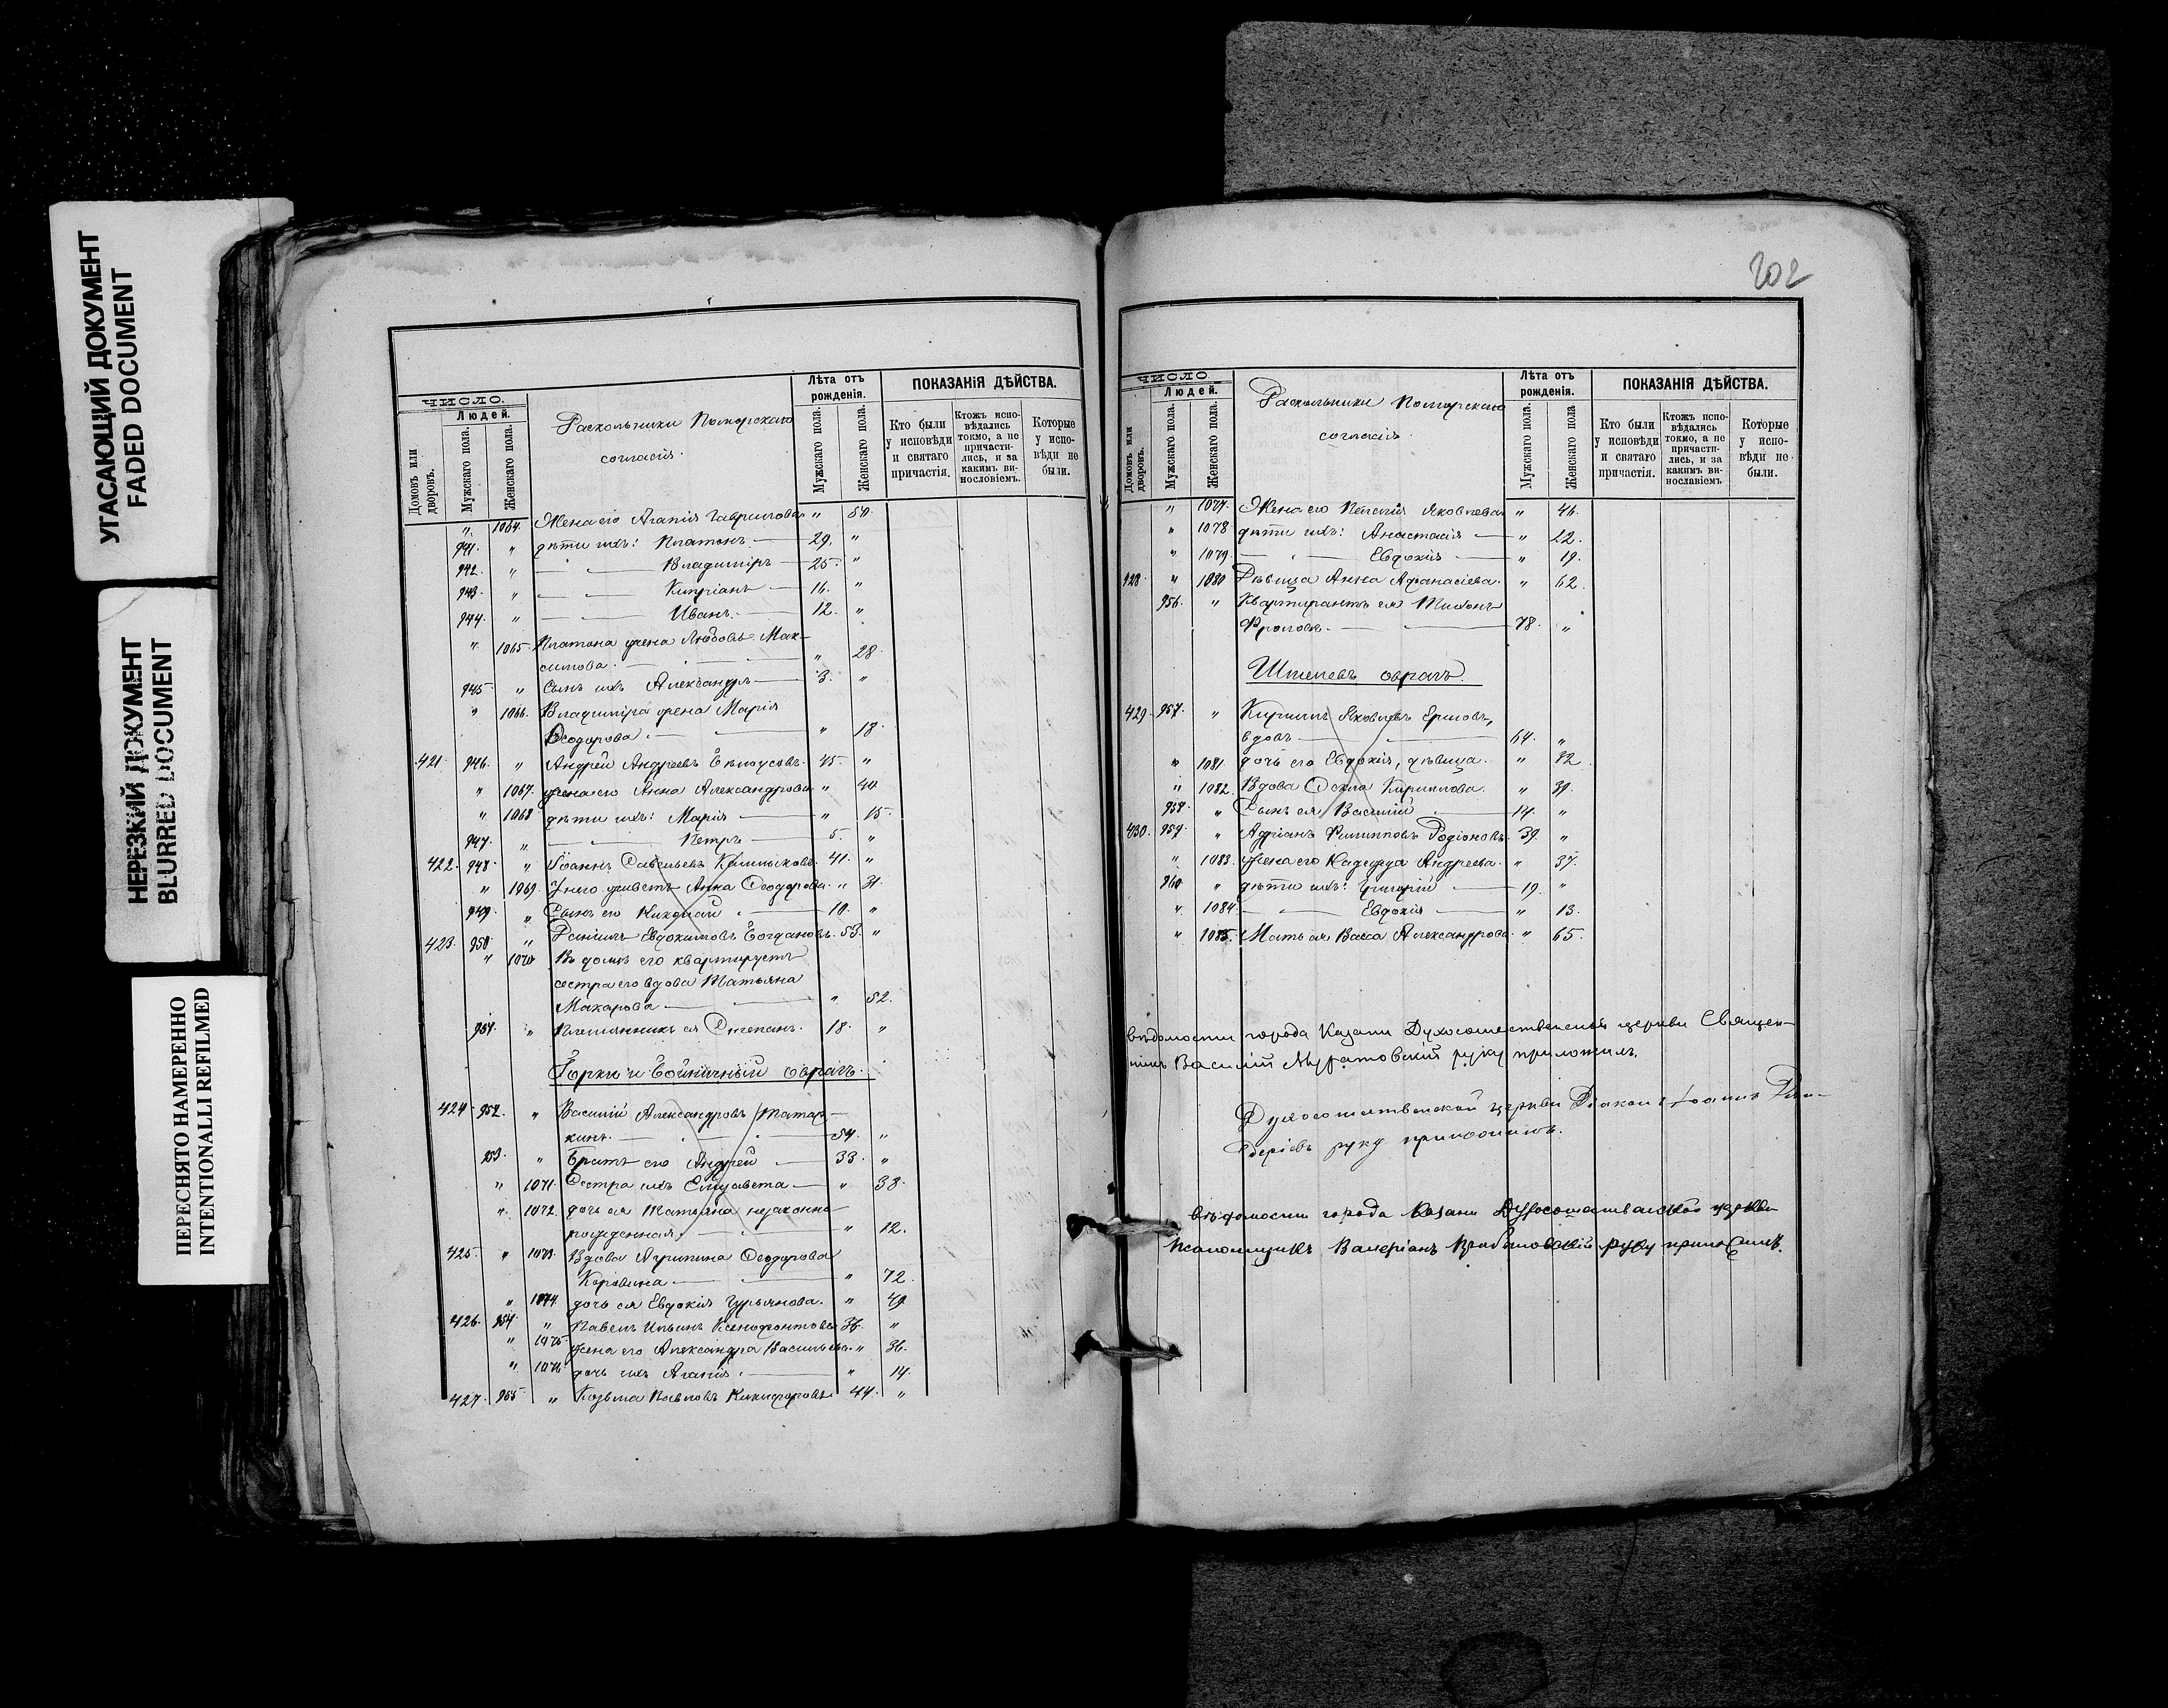 УГАСАЮЩИЙ ДОКУМЕНТ
FADED DOCUMENT
НЕРЕЗКИЙ ДОКУМЕНТ
BLURRED DOCUMENT
ПЕРЕСНЯТО НАМЕРЕННО
INTENTIONALLI REFILMED
ЧИСЛО.
Людей.
Домовъ или дворовъ.
Мужскаго пола.
Женскаго пола.
Раскольники Поморскаго
согласія.
Лѣта отъ
рожденія.
Мужскаго пола.
Женскаго пола.
ПОКАЗАНІЯ ДѢЙСТВА.
Кто были у исповѣди и святаго причастія.
Ктожъ испо-вѣдались токмо, а не причасти-лись, и за какимъ ви-нословіемъ.
Которые у испо-вѣди не были.
" 1064. Жена его Агапія Гаврилова " 50.
941. " дѣти ихъ: Платонъ 29. "
942. " Владиміръ 25. "
943. " Кипріанъ 16. "
944. " Иванъ 12. "
" 1065. Платона жена Любовь Мак-
симова " 28.
945. " Сынъ ихъ Александръ 3. "
" 1066. Владиміра жена Марія
Ѳеодорова " 18.
421. 946. " Андрей Андреевъ Бѣлоусовъ. 45. "
" 1067. жена его Анна Александрова " 40
" 1068 дѣти ихъ: Марія " 15.
947. " Петръ 5. "
422. 948. " Іоаннъ Савельевъ 41. "
" 1069. У него живетъ Анна Ѳеодорова. " 31.
949. " Сынъ его Николай 10. "
423. 950. " Даніилъ Евдокимовъ Богдановъ. 53. "
" 1070 Въ домѣ его квартируетъ
сестра его вдова Татьяна
Макарова " 52.
951. " Племянникъ ея Степанъ. 18. "
Горки и Бойничный оврагъ.
424. 952. " Василій Александровъ Татар-
кинъ. 54. "
953. " Братъ его Андрей 33. "
" 1071. Сестра ихъ Елизавета " 38.
" 1072. дочь ея Татьяна незаконно-
рожденная " 12.
425. " 1073. Вдова Агрипина Ѳеодорова
" 72.
" 1074. дочь ея Евдокія Гурьянова. " 49
426. 954. " Павелъ Ильинъ Ксенофонтовъ 36. "
" 1075. жена его Александра Васильева. " 36.
" 1076. дочь ихъ Агапія " 14.
427. 955. " Козьма Павловъ Никифоровъ 44. "
202
ЧИСЛО.
Людей.
Домовъ или дворовъ.
Мужскаго пола.
Женскаго пола.
Раскольники Поморскаго
согласія.
Лѣта отъ
рожденія.
Мужскаго пола.
Женскаго пола
ПОКАЗАНІЯ ДѢЙСТВА.
Кто были у исповѣди и святаго причастія.
Ктожъ испо-вѣдались токмо, а не причасти-лись, и за какимъ ви-нословіемъ.
Которые у испо-вѣди не были.
" 1077. Жена его Пелагія Яковлева " 46.
" 1078 дѣти ихъ: Анастасія " 22.
" 1079. Евдокія " 19.
428. " 1080 Дѣвица Анна Афанасіева. " 62.
956. " Квартирантъ ея Тихонъ
Фроловъ. 78. "
Шпелевъ оврагъ.
429. 957. " Кириллъ Яковлевъ Ершовъ,
вдовъ 64. "
" 1081. дочь его Евдокія, дѣвица. " 32.
" 1082. Вдова Ѳекла Кириллова. " 39.
958. " Сынъ ея Василій 14. "
430. 959. " Адріанъ Филипповъ Родіоновъ. 39. "
" 1083. жена его Надежда Андреева. " 37.
960. " дѣти ихъ: Григорій 19. "
" 1084. Евдокія " 13.
" 1085. Мать ея Васса Александрова " 65.
вѣдомости города Казани Духосошественской церкви Священ-
никъ Василій руку приложилъ.
Духосошественской церкви Діаконъ Іоаннъ
руку приложилъ.
вѣдомости города Казани Духосошественской церкви
Псаломщикъ Валеріанъ руку приложилъ.